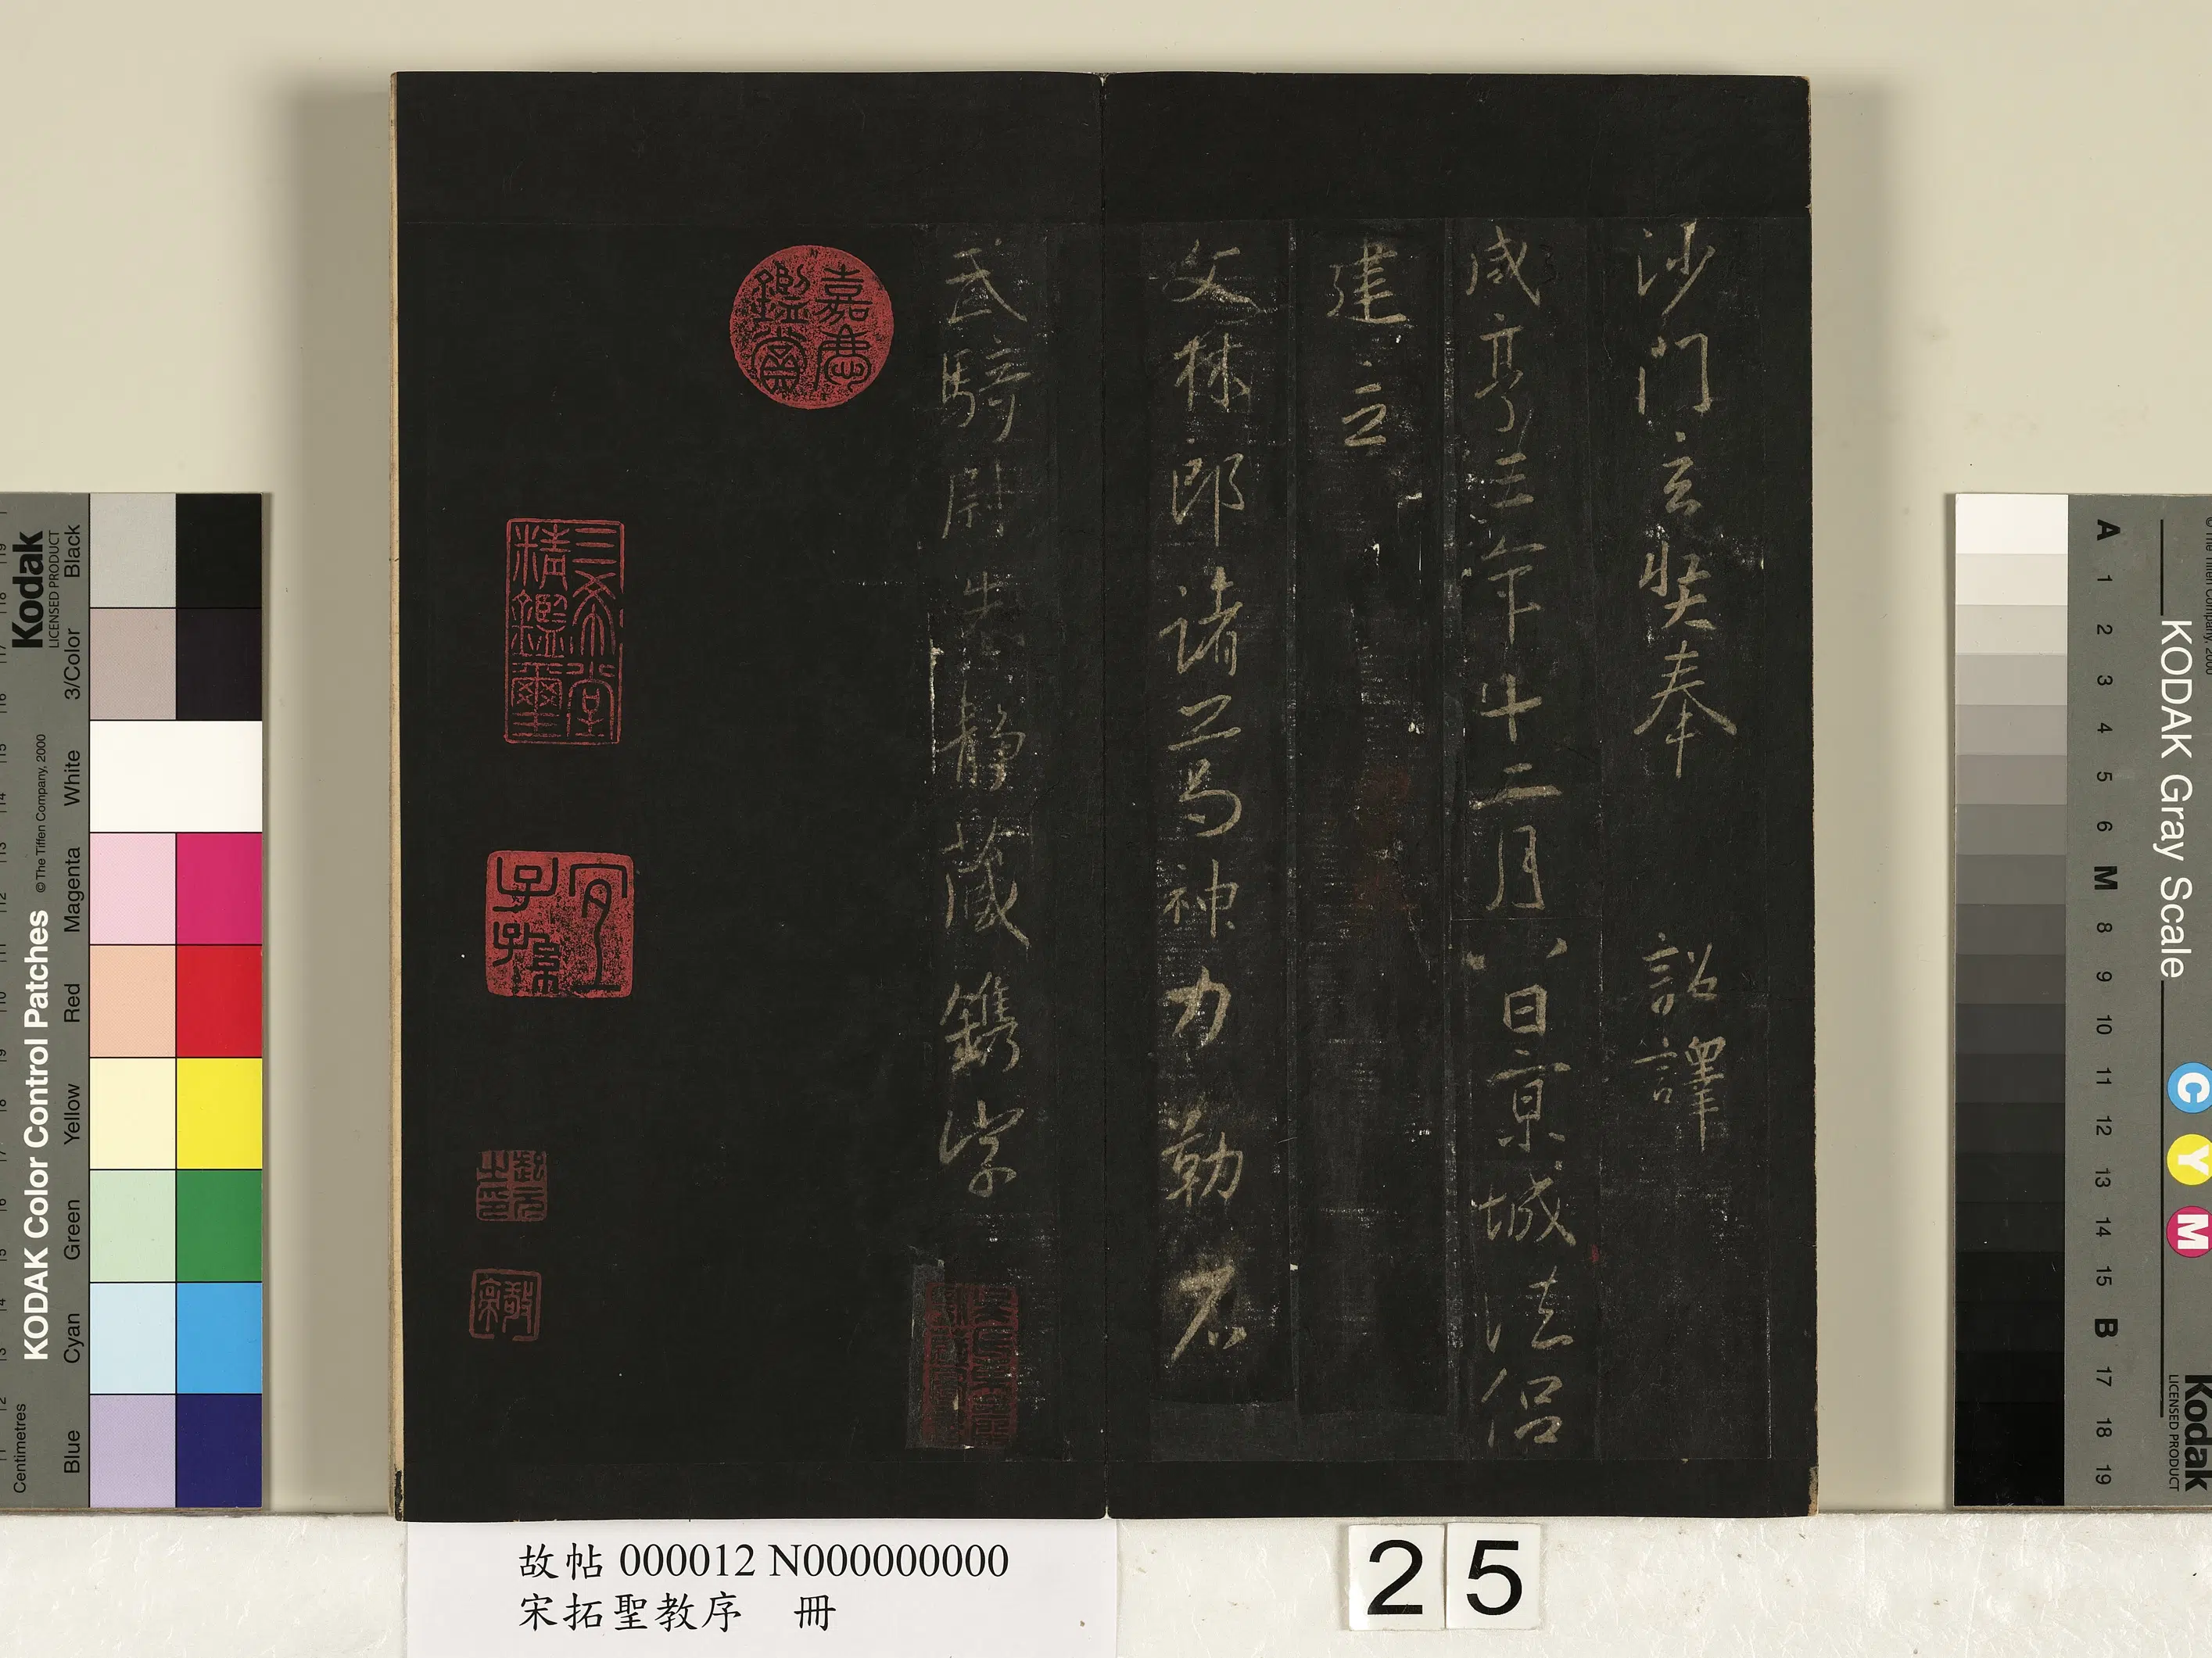 沙門玄奘奉　詔譯
咸亨三年十二月八日京城法侶
建立
文林郎諸葛神力勒石
武騎尉朱靜藏鐫字
嘉慶鑑賞
三希堂精鑑璽
宜子孫
故帖 000012 N000000000
宋拓聖教序　冊
25
Kodak
LICENSED PRODUCT
KODAK Color Control Patches
©The Tiffen Company, 2000
Centimetres
Blue
Cyan
Green
Yellow
Red
Magenta
White
3/Color
Black
KODAK Gray Scale
©The Tiffen Company, 2000
A 1 2 3 4 5 6 M 8 9 10 11 12 13 14 15 B 17 18 19
C
Y
M
Kodak
LICENSED PRODUCT